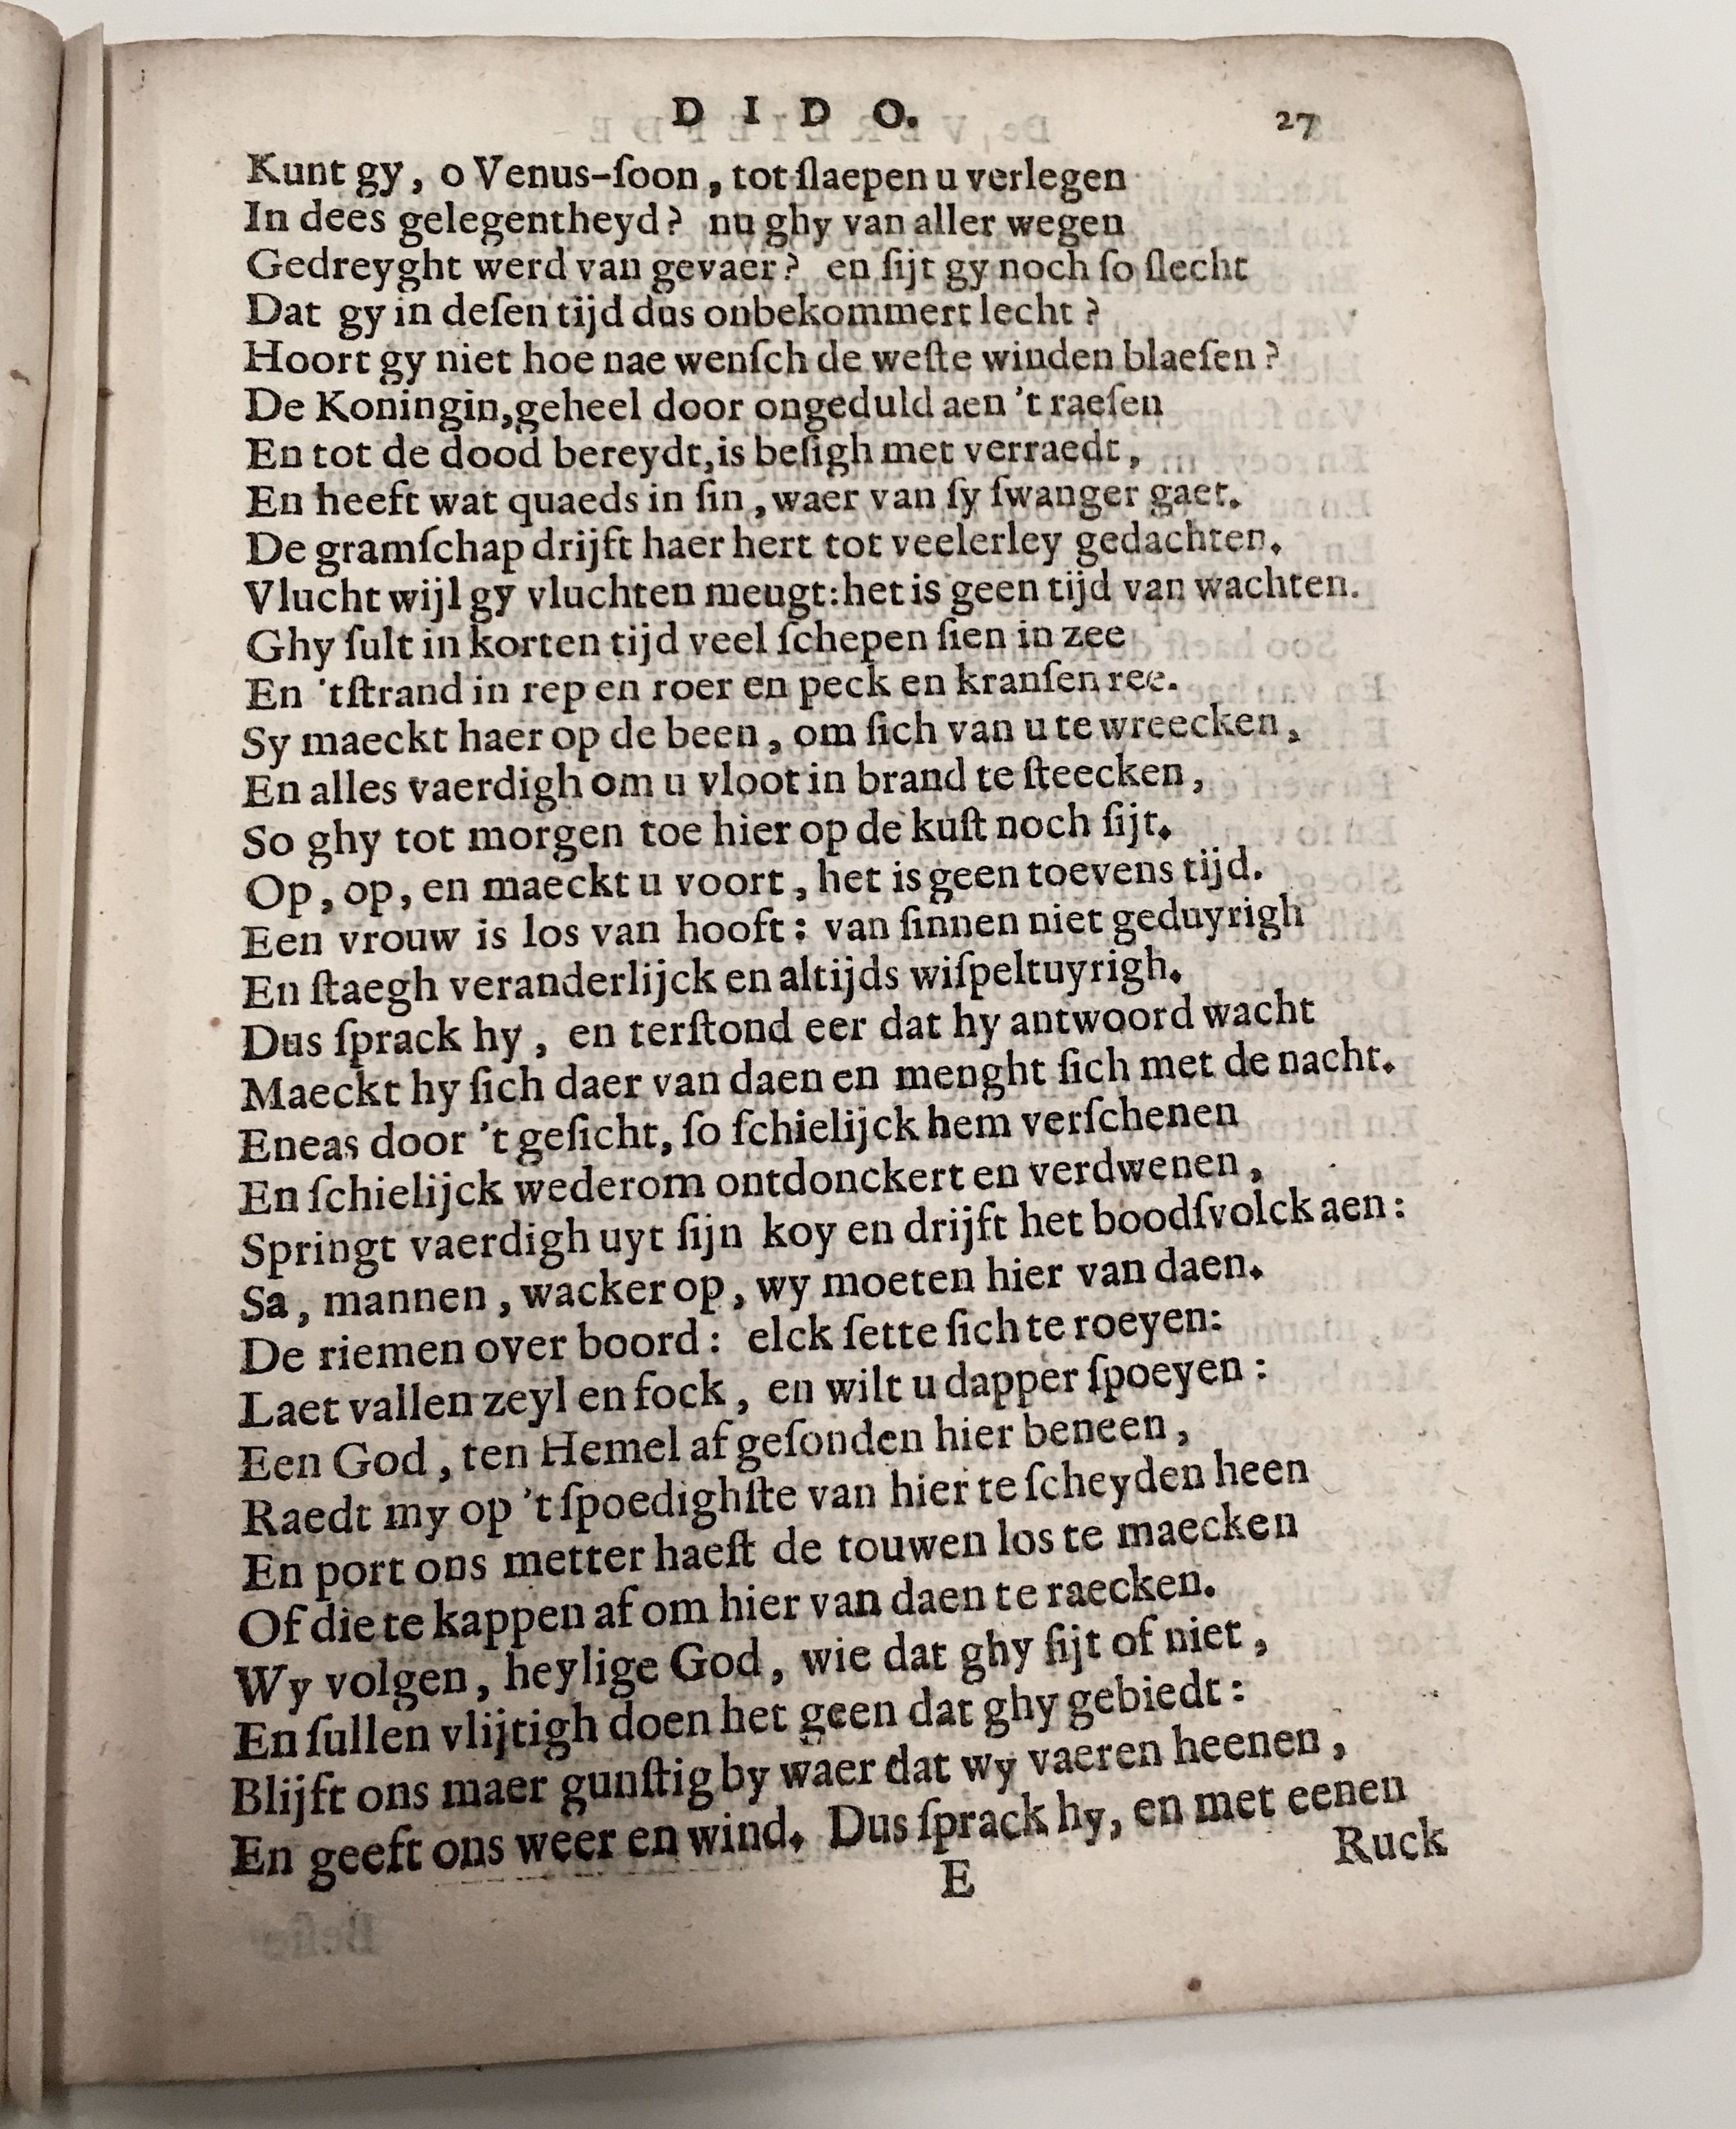 D I D O. 27
Kunt gy, o Venus-ſoon, tot ſlaepen u verlegen
In dees gelegentheyd? nu ghy van aller wegen
Gedreyght werd van gevaer? en ſijt gy noch ſo ſlecht
Dat gy in deſen tijd dus onbekommert lecht?
Hoort gy niet hoe nae wenſch de weſte winden blaeſen?
De Koningin, geheel door ongeduld aen 't raeſen
En tot de dood bereydt, is beſigh met verraedt,
En heeft wat quaeds in ſin, waer van ſy ſwanger gaet.
De gramſchap drijft haer hert tot veelerley gedachten.
Vlucht wijl gy vluchten meugt: het is geen tijd van wachten.
Ghy ſult in korten tijd veel ſchepen ſien in zee
En 'tſtrand in rep en roer en peck en kranſen ree.
Sy maeckt haer op de been, om ſich van u te wreecken,
En alles vaerdigh om u vloot in brand te ſteecken,
So ghy tot morgen toe hier op de kuſt noch ſijt.
Op, op, en maeckt u voort, het is geen toevens tijd.
Een vrouw is los van hooft: van ſinnen niet geduyrigh
En ſtaegh veranderlijck en altijds wiſpeltuyrigh.
Dus ſprack hy, en terſtond eer dat hy antwoord wacht
Maeckt hy ſich daer van daen en menght ſich met de nacht.
Eneas door 't geſicht, ſo ſchielijck hem verſchenen
En ſchielijck wederom ontdonckert en verdwenen,
Springt vaerdigh uyt ſijn koy en drijft het boodſvolck aen:
Sa, mannen, wacker op, wy moeten hier van daen.
De riemen over boord: elck ſette ſich te roeyen:
Laet vallen zeyl en fock, en wilt u dapper ſpoeyen:
Een God, ten Hemel af geſonden hier beneen,
Raedt my op 't ſpoedighſte van hier te ſcheyden heen
En port ons metter haeſt de touwen los te maecken
Of die te kappen af om hier van daen te raecken.
Wy volgen, heylige God, wie dat ghy ſijt of niet,
En ſullen vlijtigh doen het geen dat ghy gebiedt:
Blijft ons maer gunſtig by waer dat wy vaeren heenen,
En geeft ons weer en wind. Dus ſprack hy, en met eenen
E Ruck